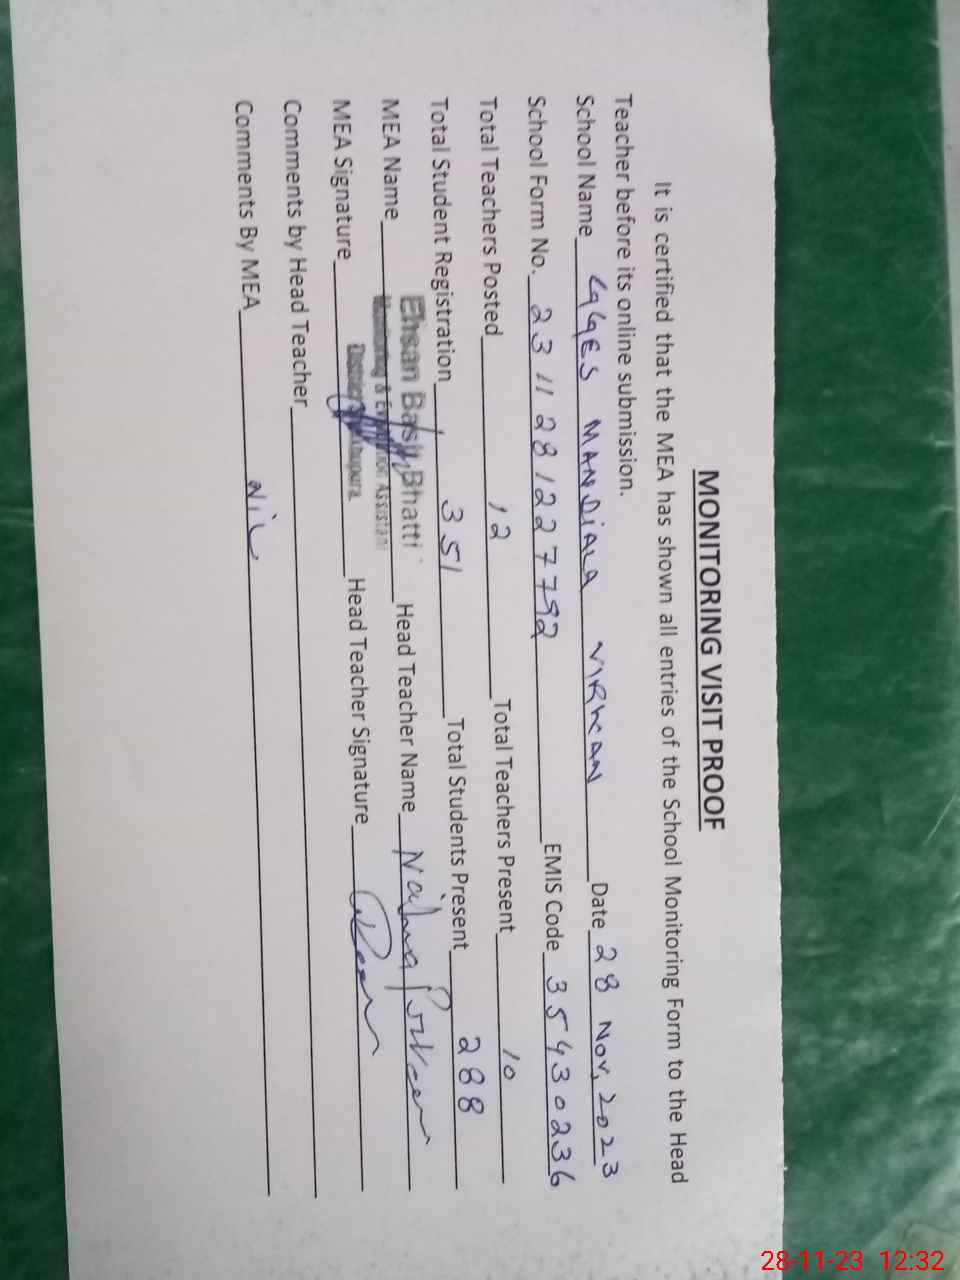 MONITORING VISIT PROOF
It is certified that the MEA has shown all entries of the School Monitoring Form to the Head
Teacher before its online submission.
School Name GGES MANDIALA VIRKAN Date 28 Nov, 2023
School Form No. 23 11 28 1227792 EMIS Code 35430236
Total Teachers Posted 12 Total Teachers Present 10
Total Student Registration 351 Total Students Present 288
MEA Name Ehsan Basir Bhatti Head Teacher Name
Monitoring & Evaluation Assistant
MEA Signature District Sheikhupura Head Teacher Signature
Comments by Head Teacher
Comments By MEA Nil
28-11-23 12:32